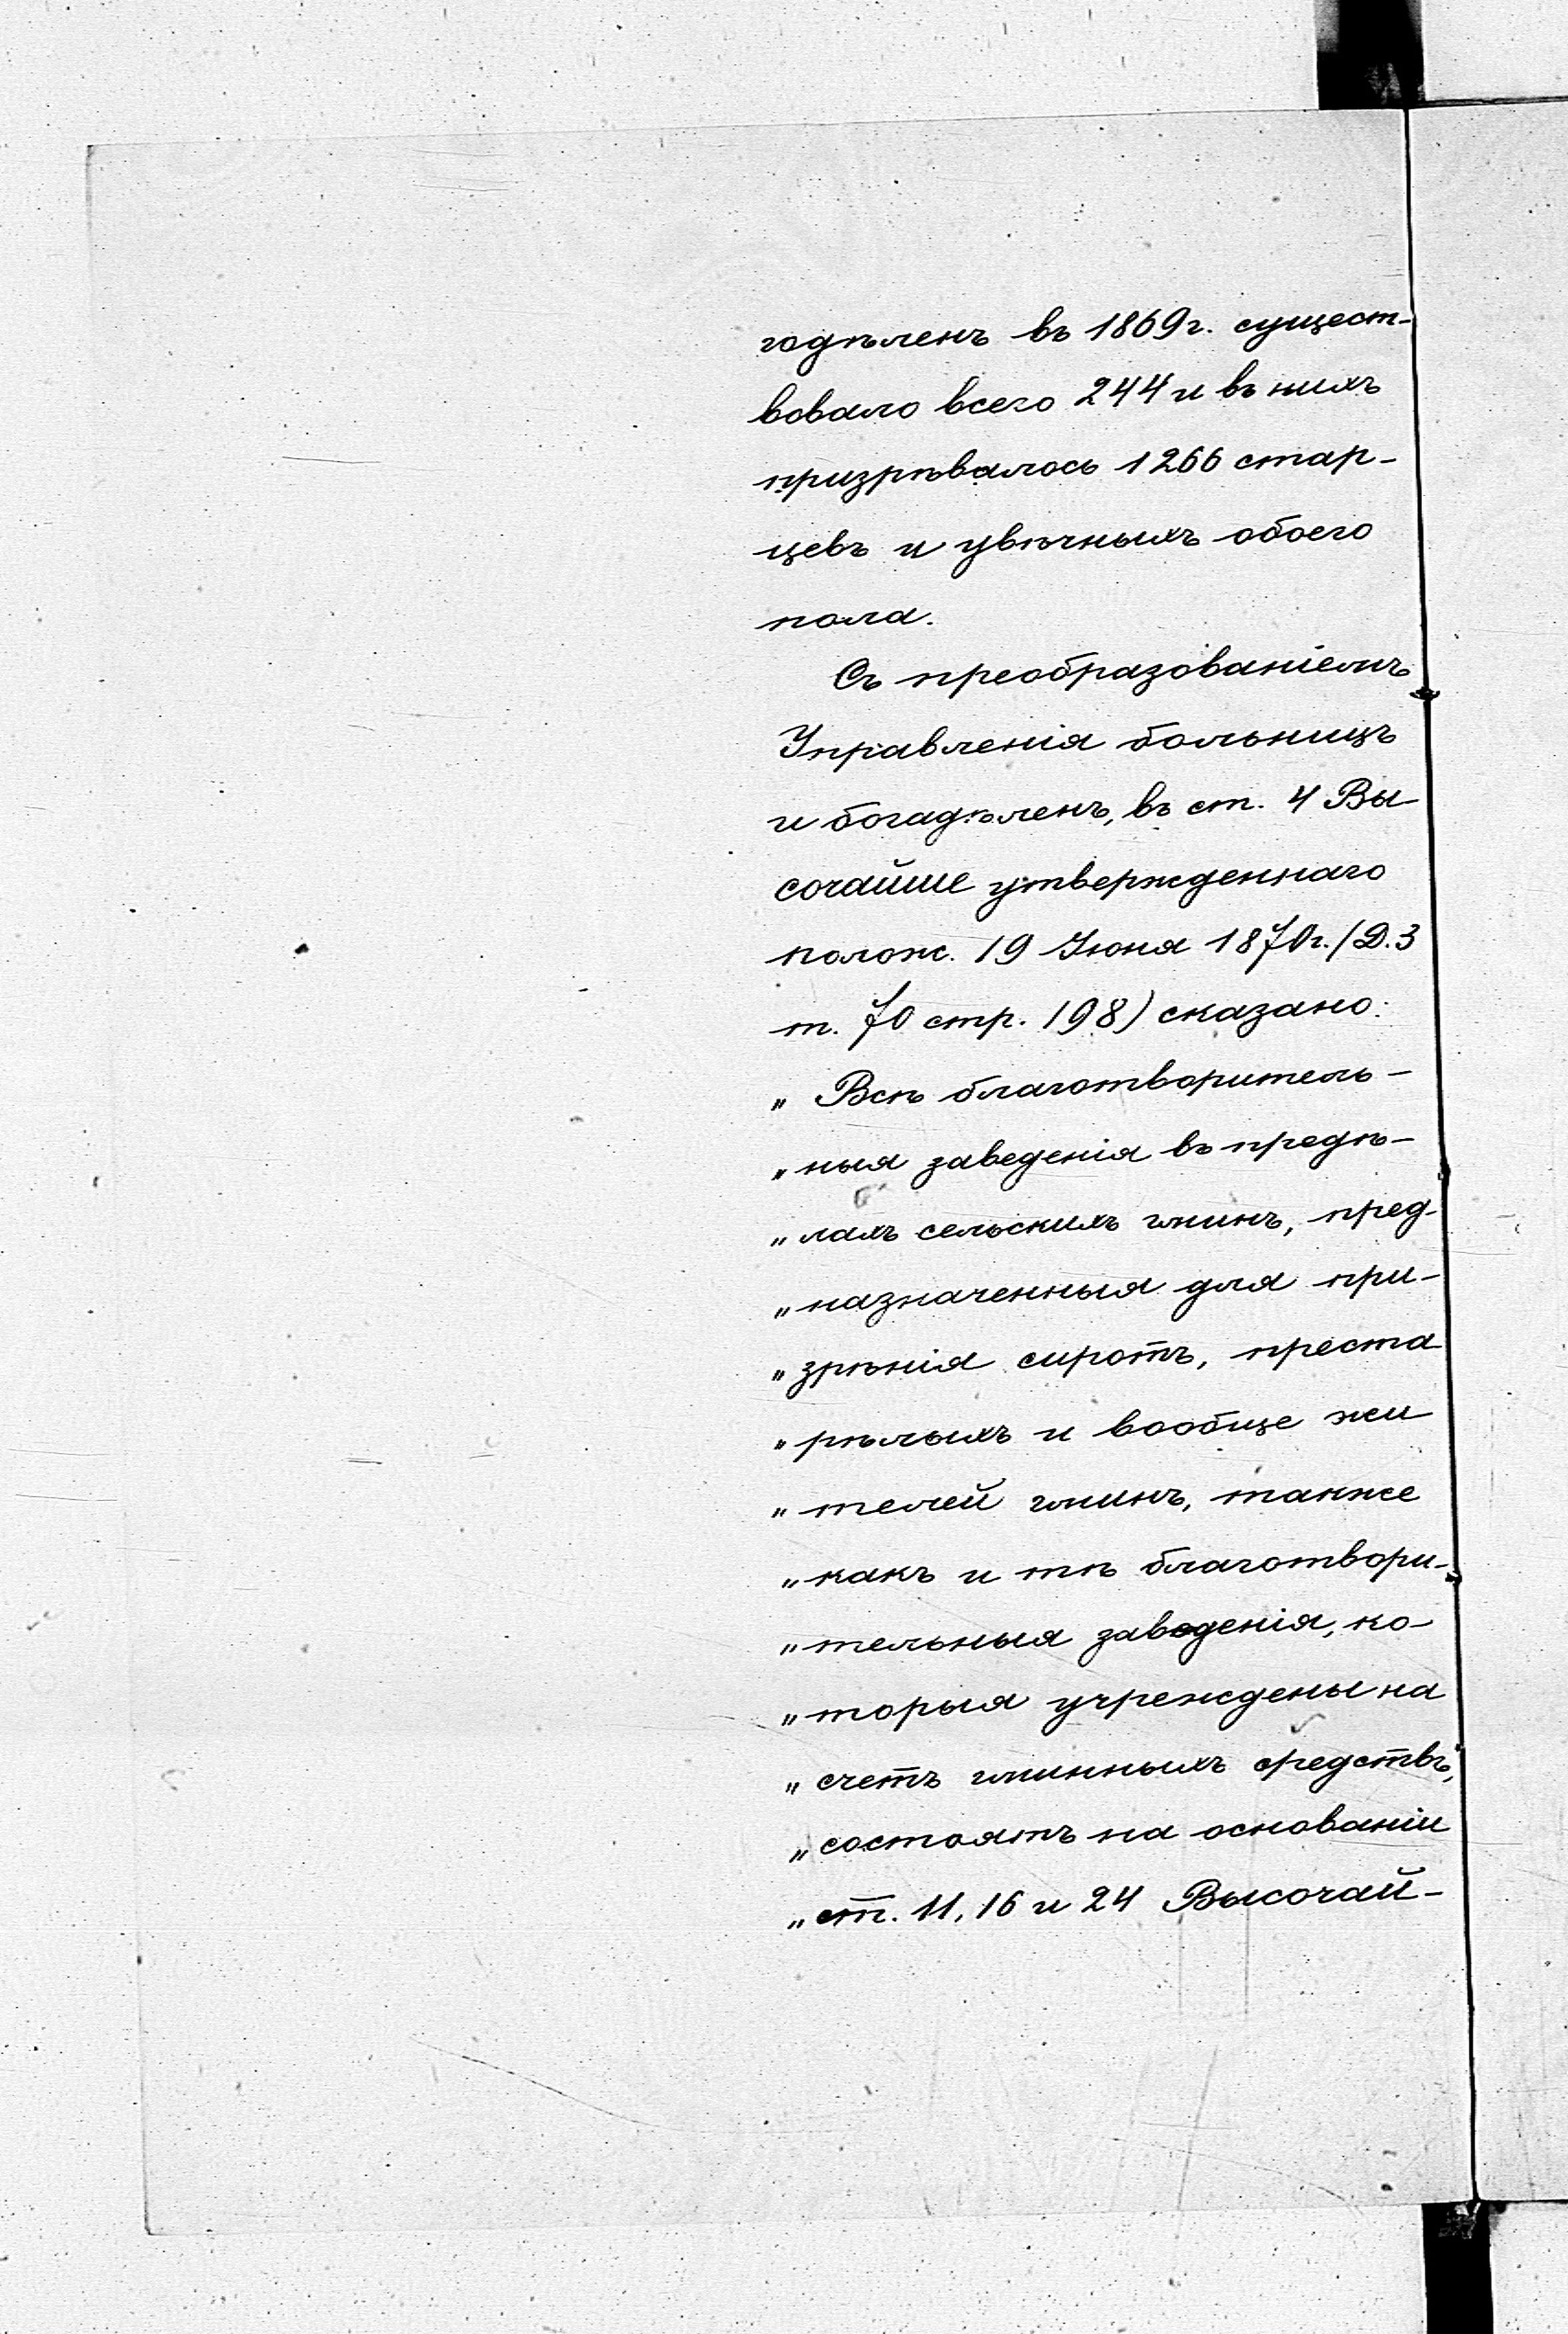 годѣленъ въ 1869 г. сущест-
вовало всего 244 и въ нихъ
призрѣвалось 1266 стар-
цевъ и увѣчныхъ обоего
пола.
Съ преобразованіемъ
Управленія больницъ
и богадѣленъ, въ ст. 4 Вы-
сочайше утвержденнаго
полож. 19 Іюня 1870 г. (Д. 3
т. 70 стр. 198) сказано:
„ Всѣ благотворитель-
„ ныя заведенія въ предѣ-
„ лахъ сельскихъ гминъ, пред-
„ назначенныя для при-
„ зрѣнія сиротъ, преста
„ рѣлыхъ и вообще жи
„ телей гминъ, также
„ какъ и тѣ благотвори-
„ тельныя заведенія, ко-
„ торыя учреждены на
„ счетъ гминныхъ средствъ,
„ состоятъ на основаніи
„ ст. 11, 16 и 24 Высочай-